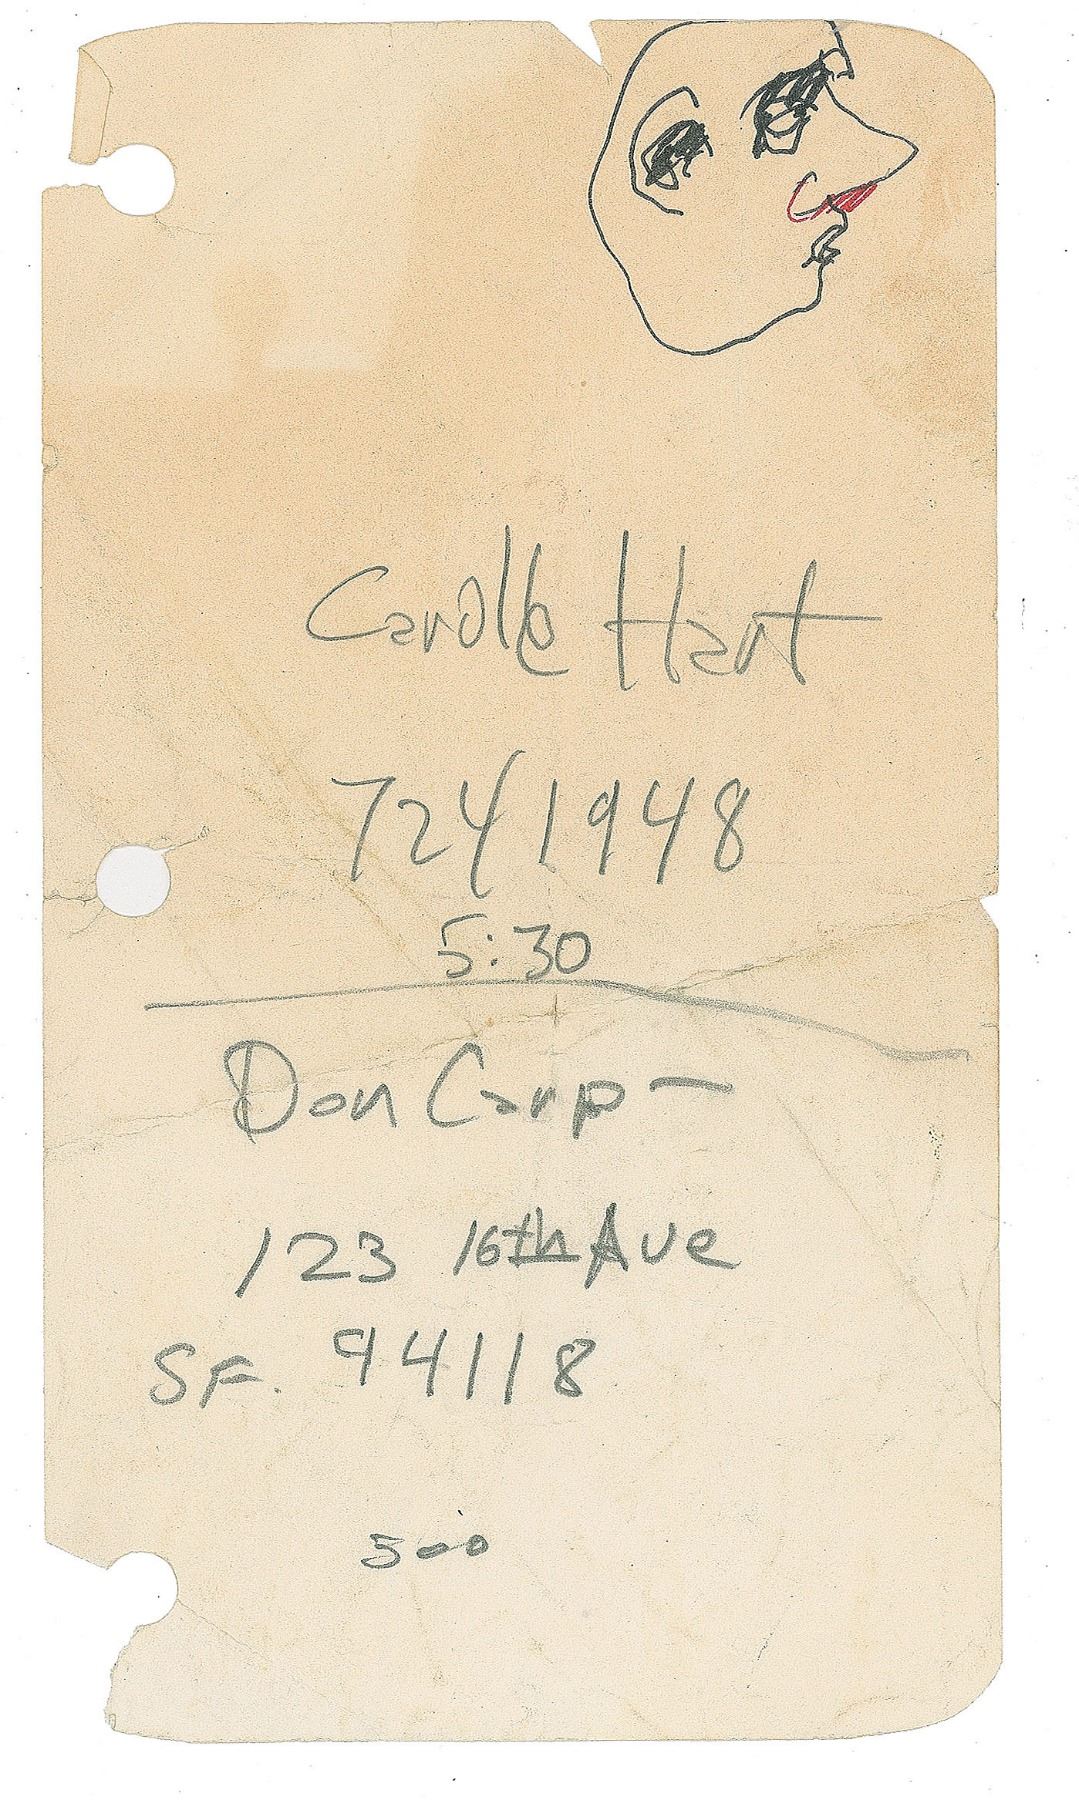 Carolle Hart
7241948
5:30
Don Carp —
123 16th Ave
SF. 94118
500